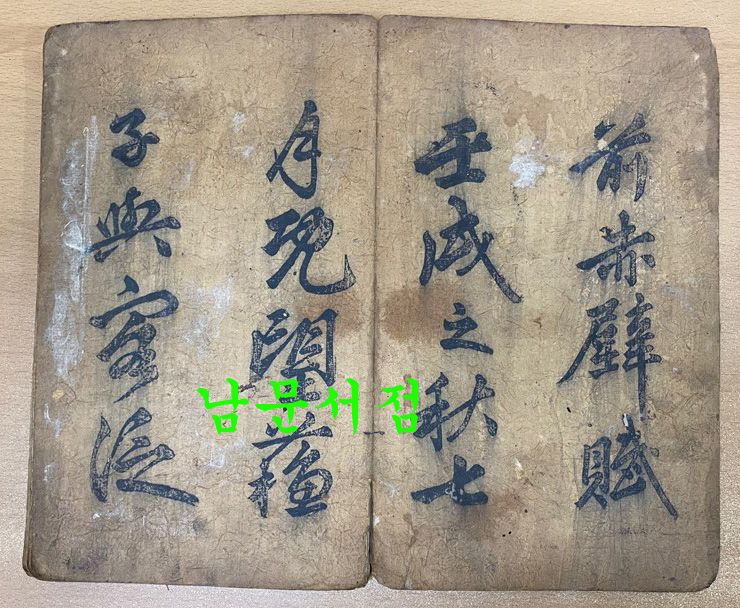 前赤壁賦
壬戌之秋七
月既望蘓
子與客泛
남문서점